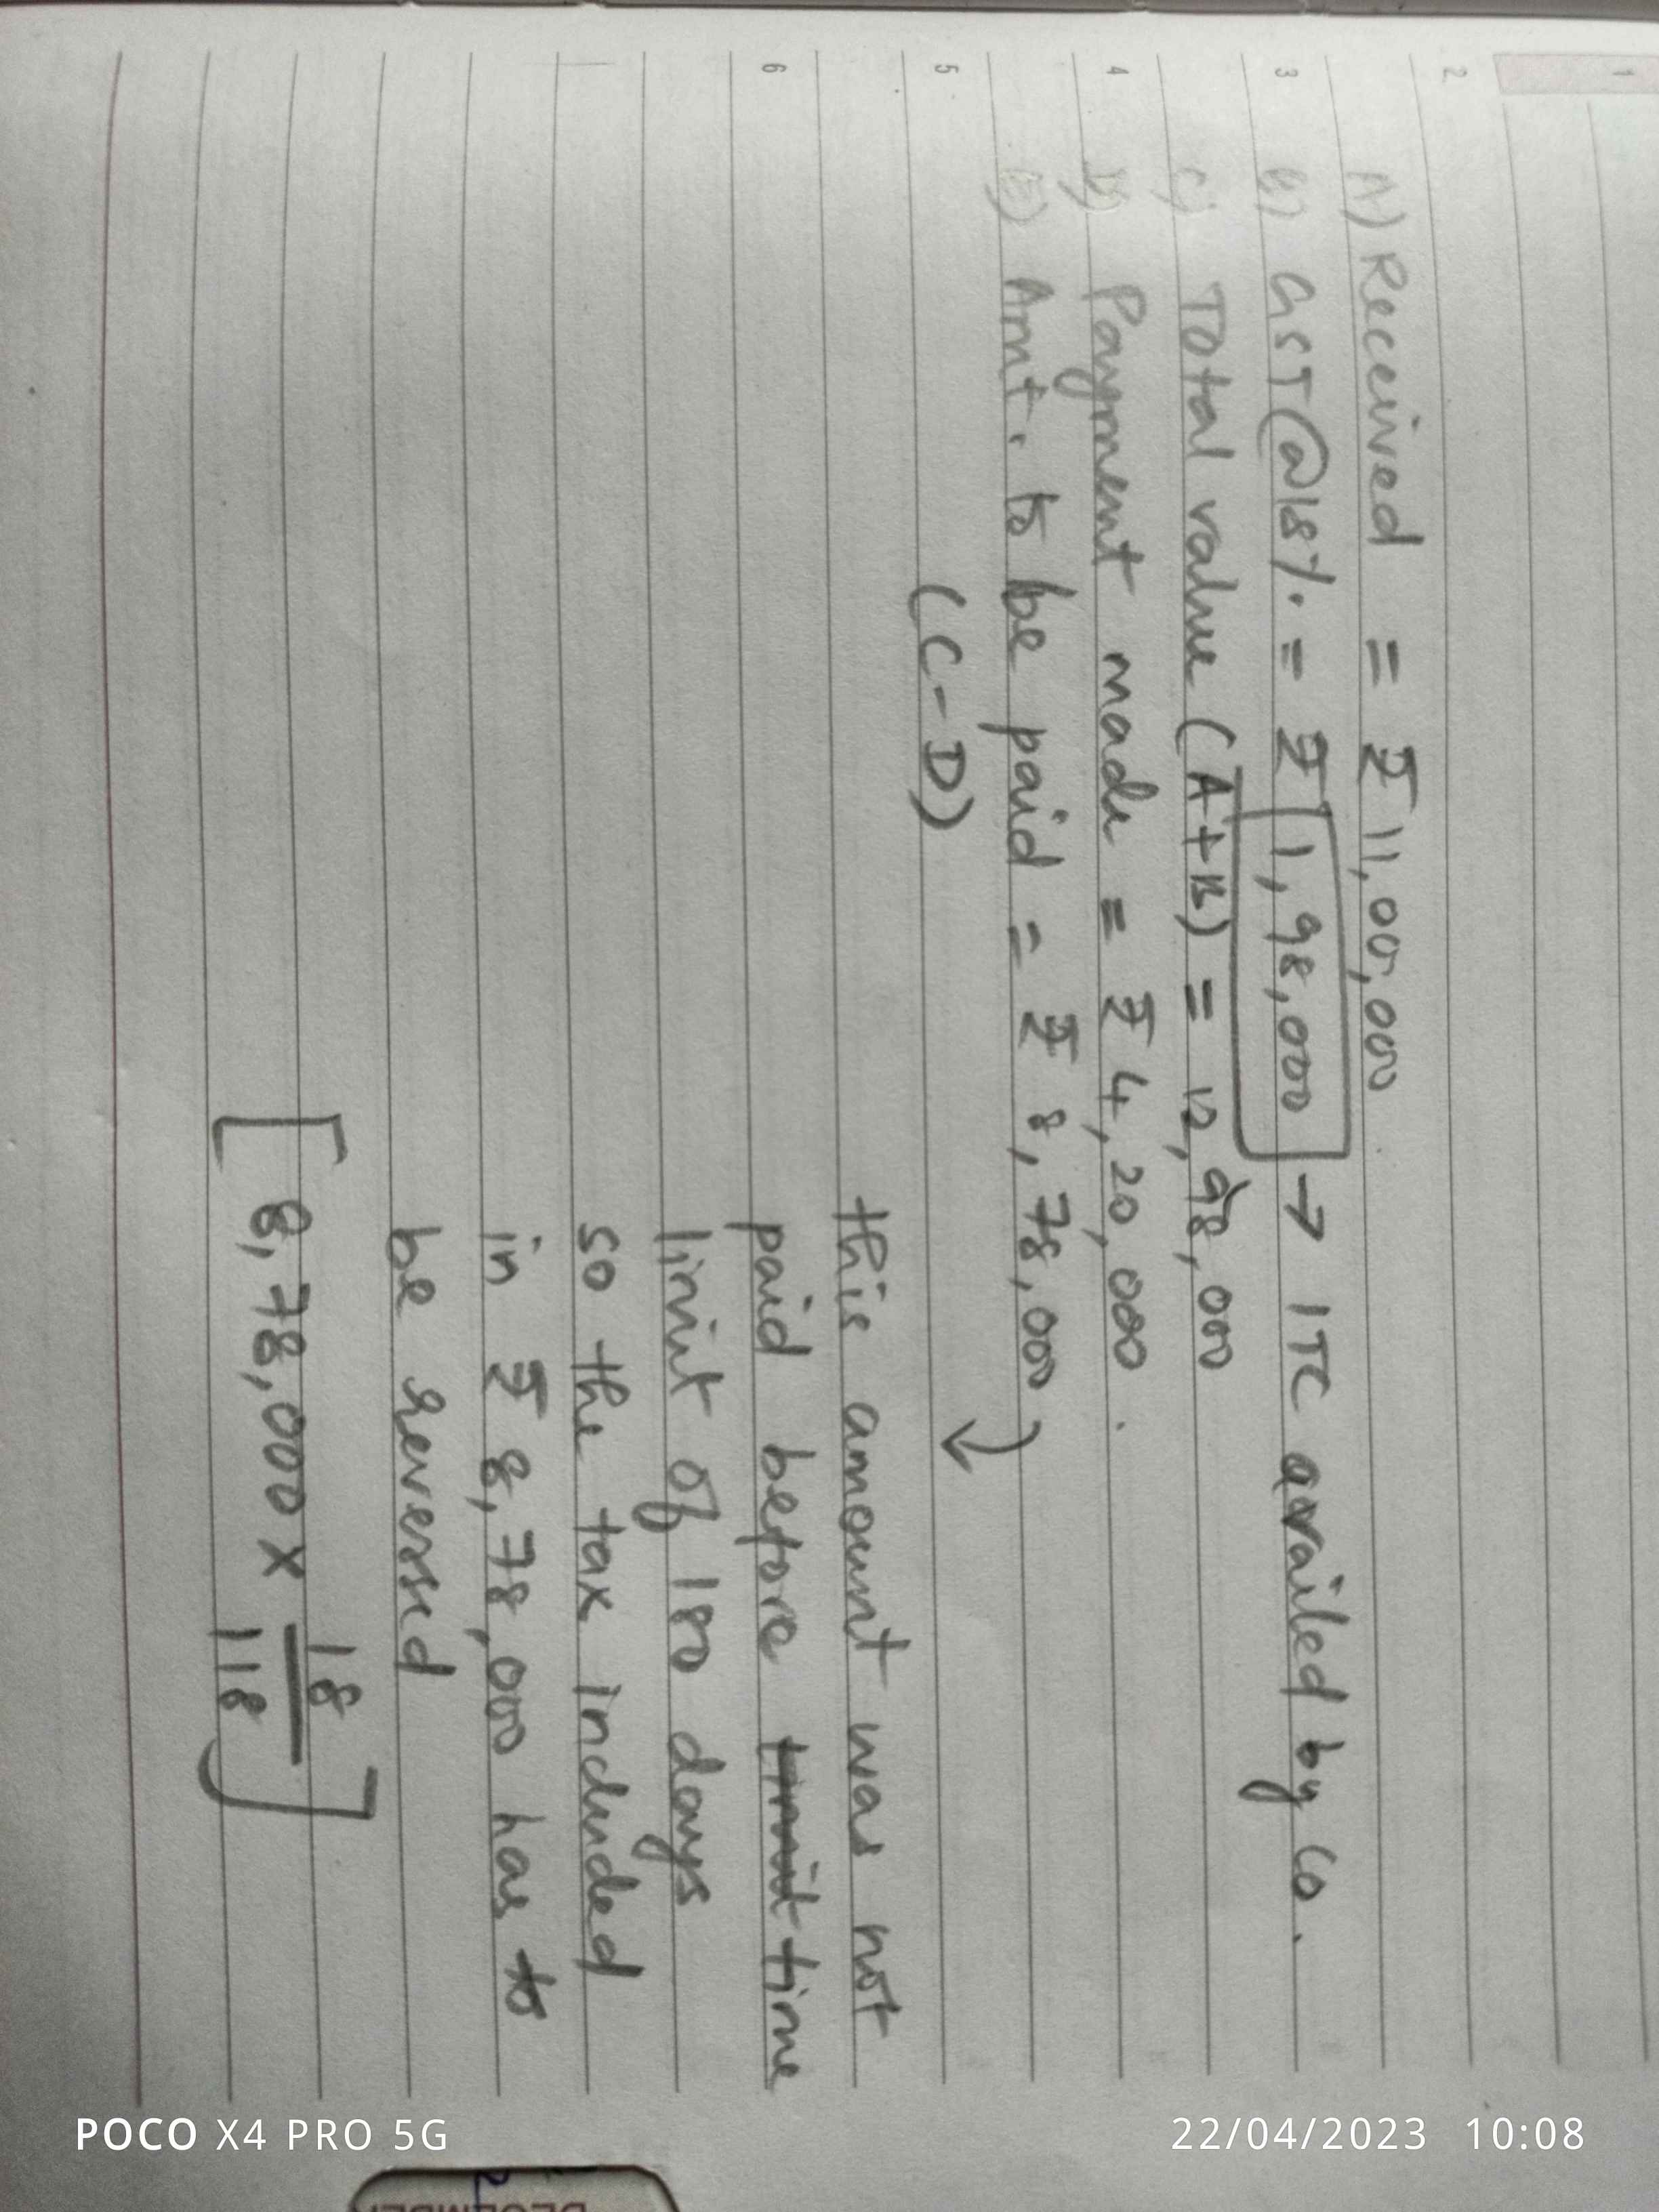 1
2
3
4
5
6
A) Received = ₹ 11,00,000
B) GST@18% = ₹ 1,98,000 → ITC availed by co.
C) Total value (A+B) = 12,98,000
D) Payment made = ₹ 4,20,000.
E) Amt. to be paid = ₹ 8,78,000
(C-D)
this amount was not
paid before limit time
limit of 180 days
so the tax included
in ₹ 8,78,000 has to
be reversed
[8,78,000 x 18/118]
POCO X4 PRO 5G
22/04/2023 10:08
DECEMBER